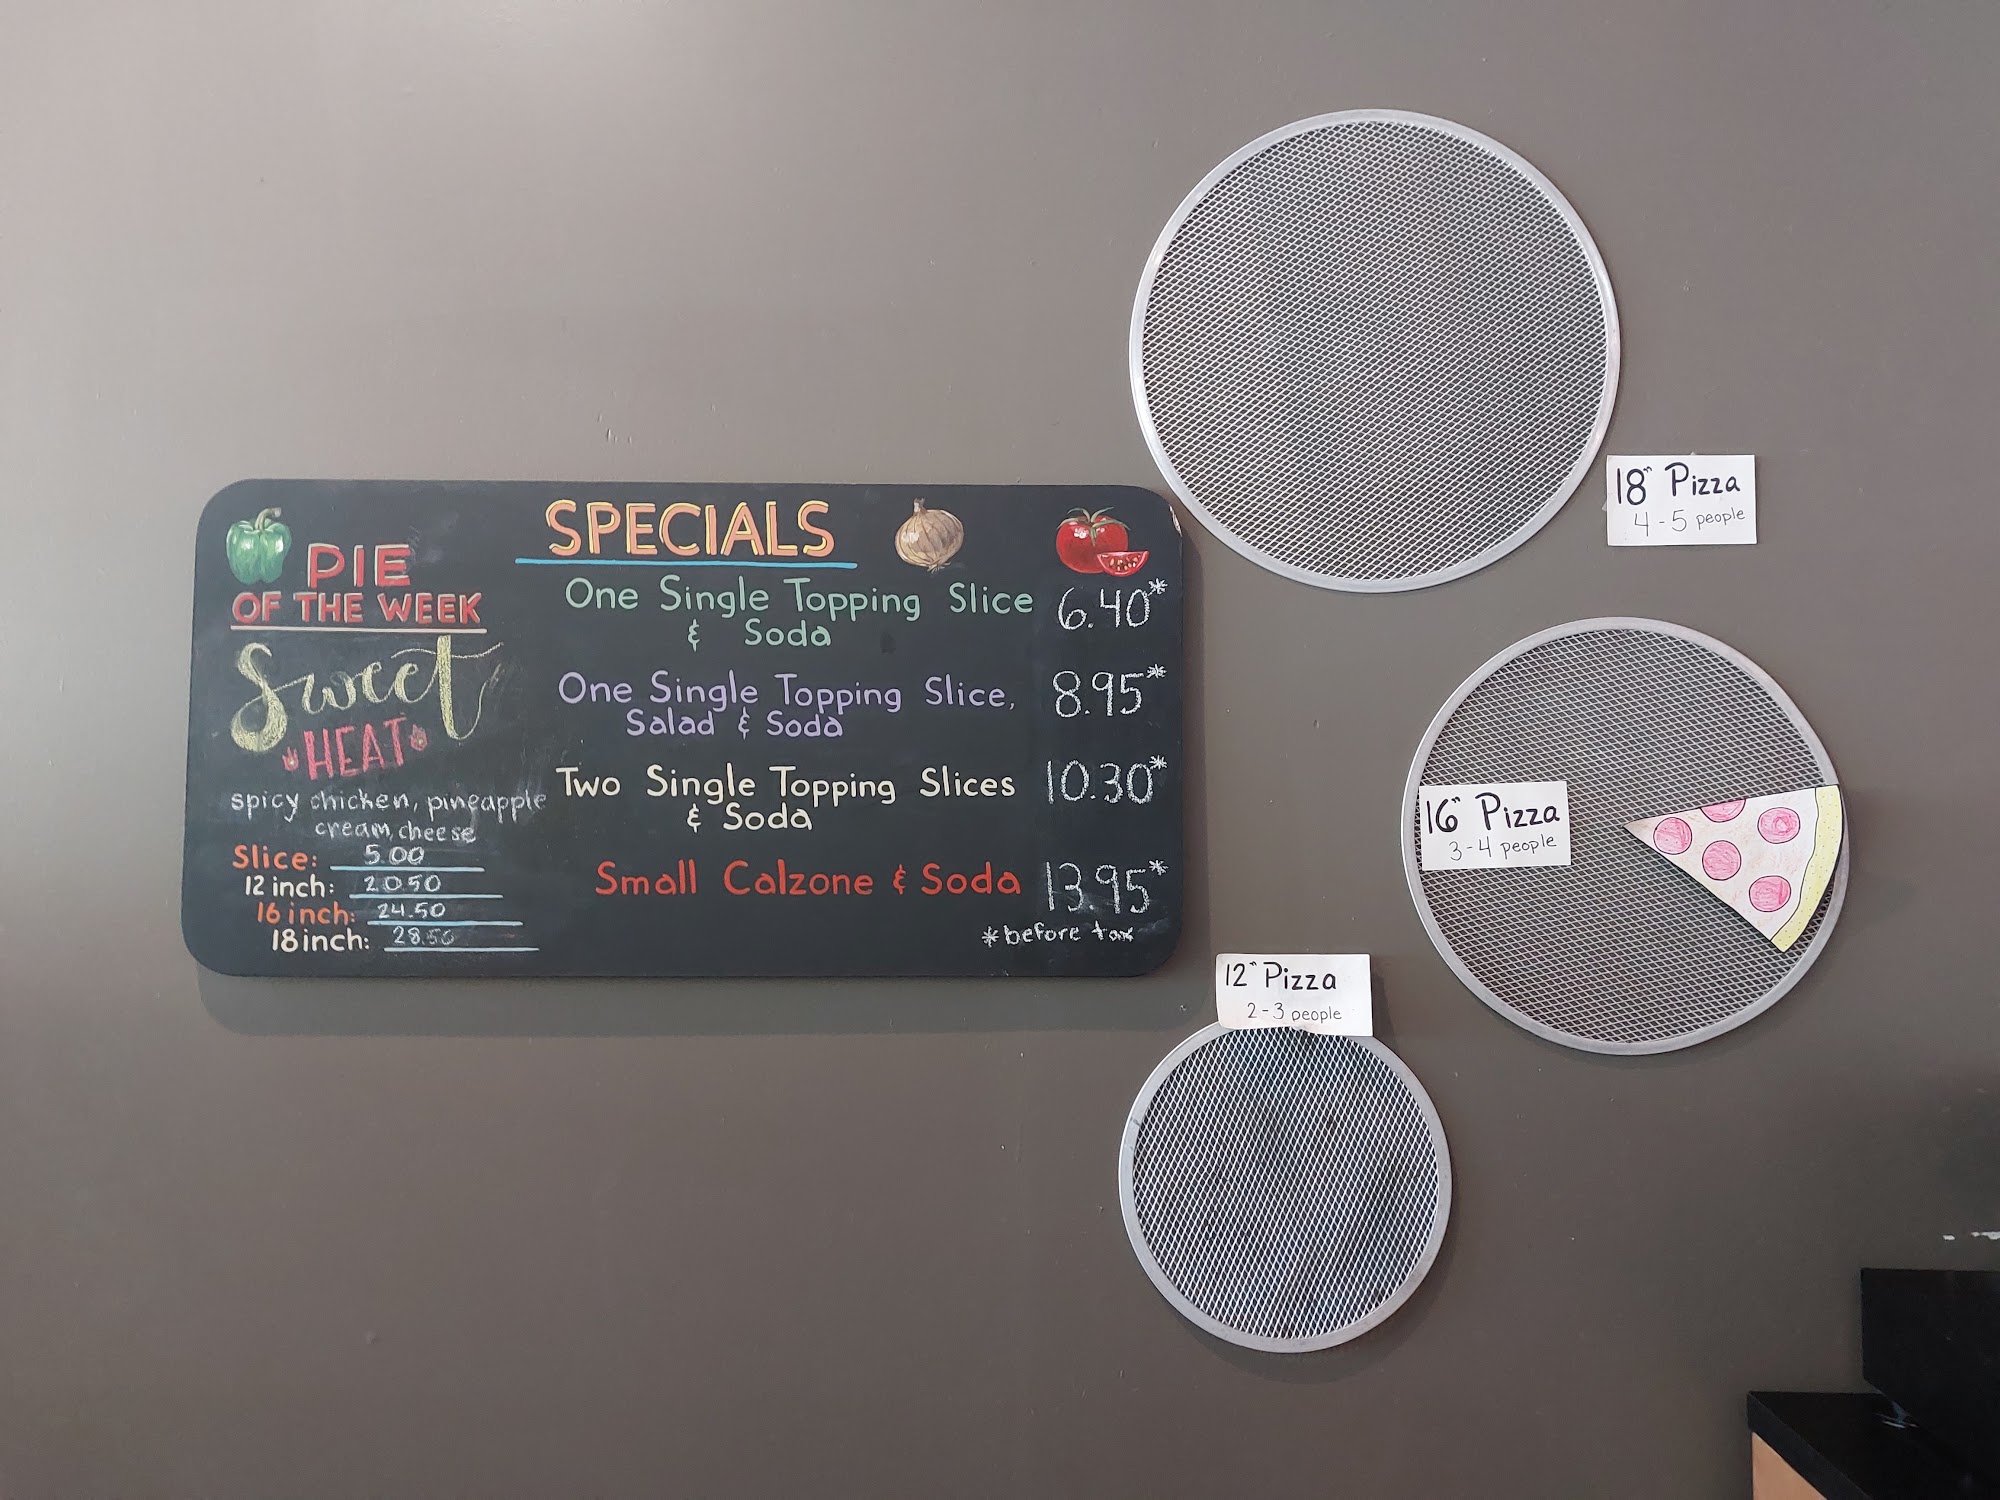 PIE
OF THE WEEK
Sweet
HEAT
spicy chicken, pineapple
cream cheese
Slice: 5.00
12 inch: 20.50
16 inch: 24.50
18 inch: 28.50
SPECIALS
One Single Topping Slice 6.40*
& Soda
One Single Topping Slice, 8.95*
Salad & Soda
Two Single Topping Slices 10.30*
& Soda
Small Calzone & Soda 13.95*
*before tax
18" Pizza
4-5 people
16" Pizza
3-4 people
12" Pizza
2-3 people